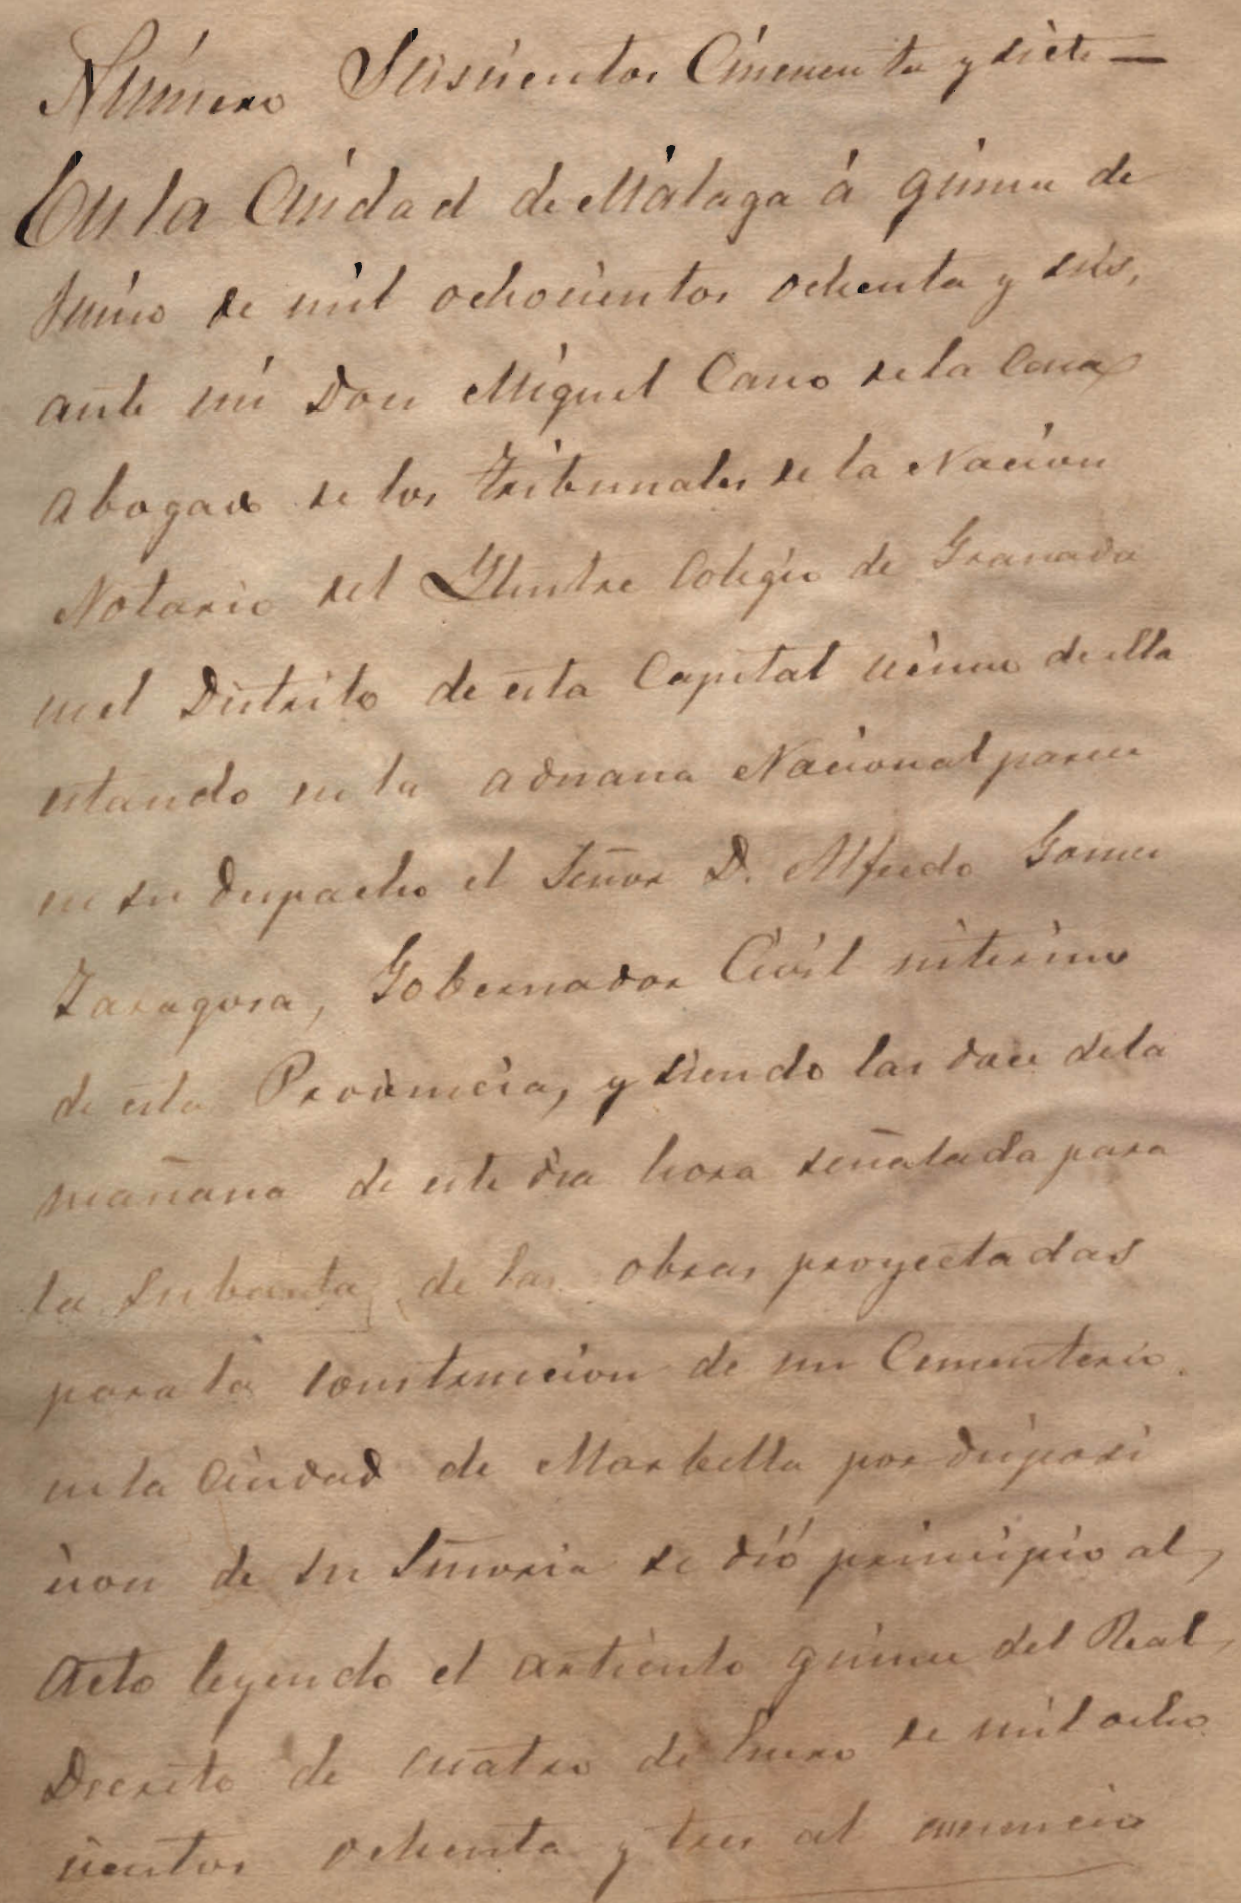 Número Seiscientos Cincuenta y siete —
En la Ciudad de Málaga á quince de
Junio de mil ochocientos ochenta y seis,
ante mi Don Miguel Cano de la Casa
Abogado de los Tribunales de la Nacion
Notario del Ylustre Colegio de Granada
en el Distrito de esta Capital vécino de ella
estando en la aduana Nacional parece
en su despacho el Señor D. Alfredo Gomez
Zaragoza, Gobernador Civil interino
de esta Provincia, y siendo las doce de la
mañana de este dia hora señalada para
la subasta de las obras proyectadas
para la construccion de un Cementerio
en la Ciudad de Marbella por disposi
cion de su Señoria se dió principio al
Acto leyendo el articulo quince del Real
Decreto de cuatro de Enero de mil ocho
cientos ochenta y tres al anuncio